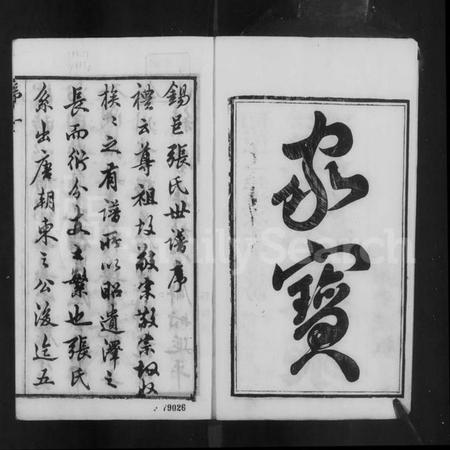 家寶
錫邑張氏世譜序
禮云尊祖故敬宗敬宗故收
族之有譜所以昭遺澤之
長而衍分支之繁也張氏
系出唐朝東之公後迄五
79026
FamilySearch